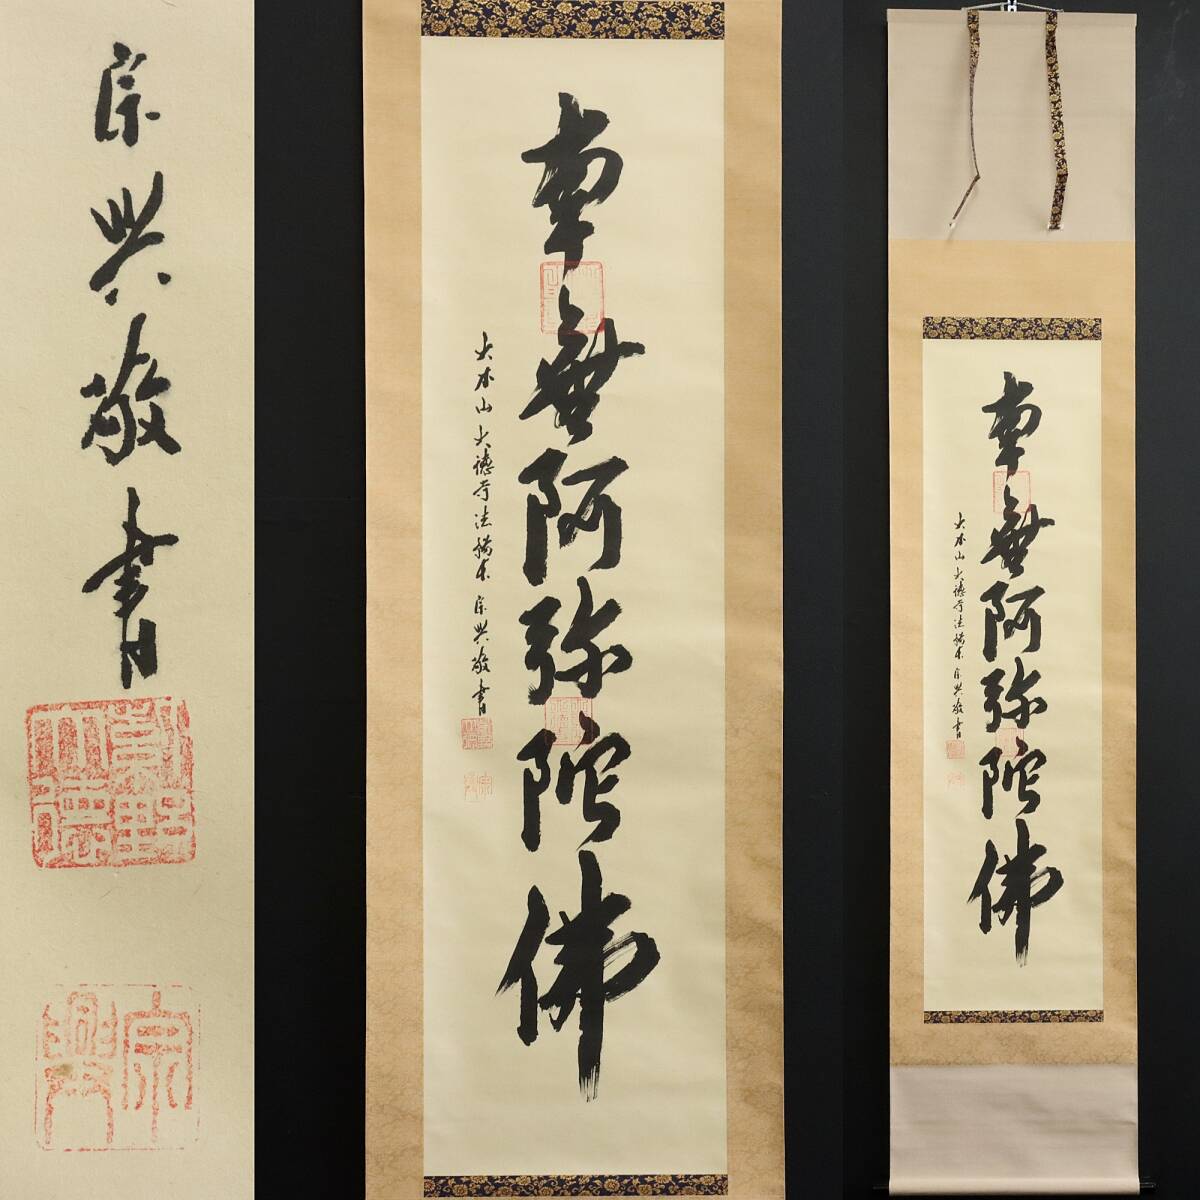 宗興敬書
宗興
南無阿弥陀佛
大本山大徳寺法務本宗興敬書
宗興
南無阿弥陀佛
大本山大徳寺法務本宗興敬書